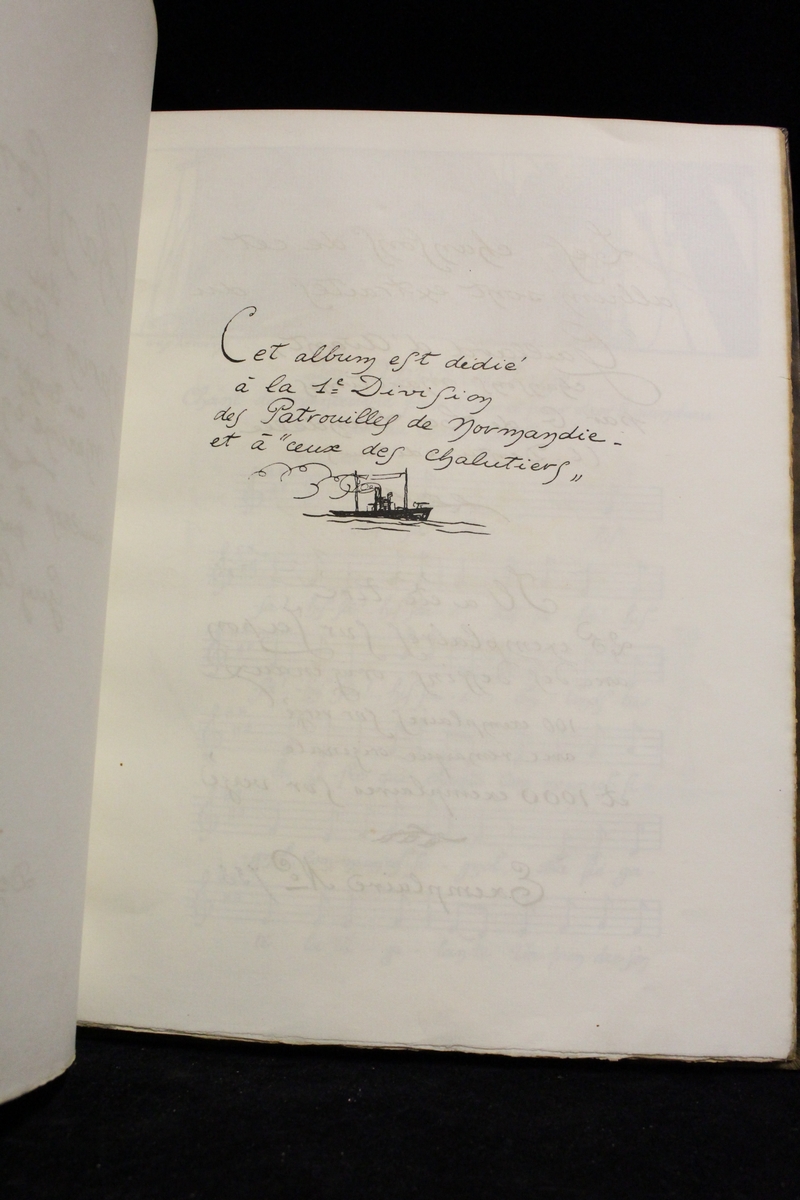 Cet album est dédié
à la 1e Division
des Patrouilles de Normandie -
et à "ceux des Chalutiers„